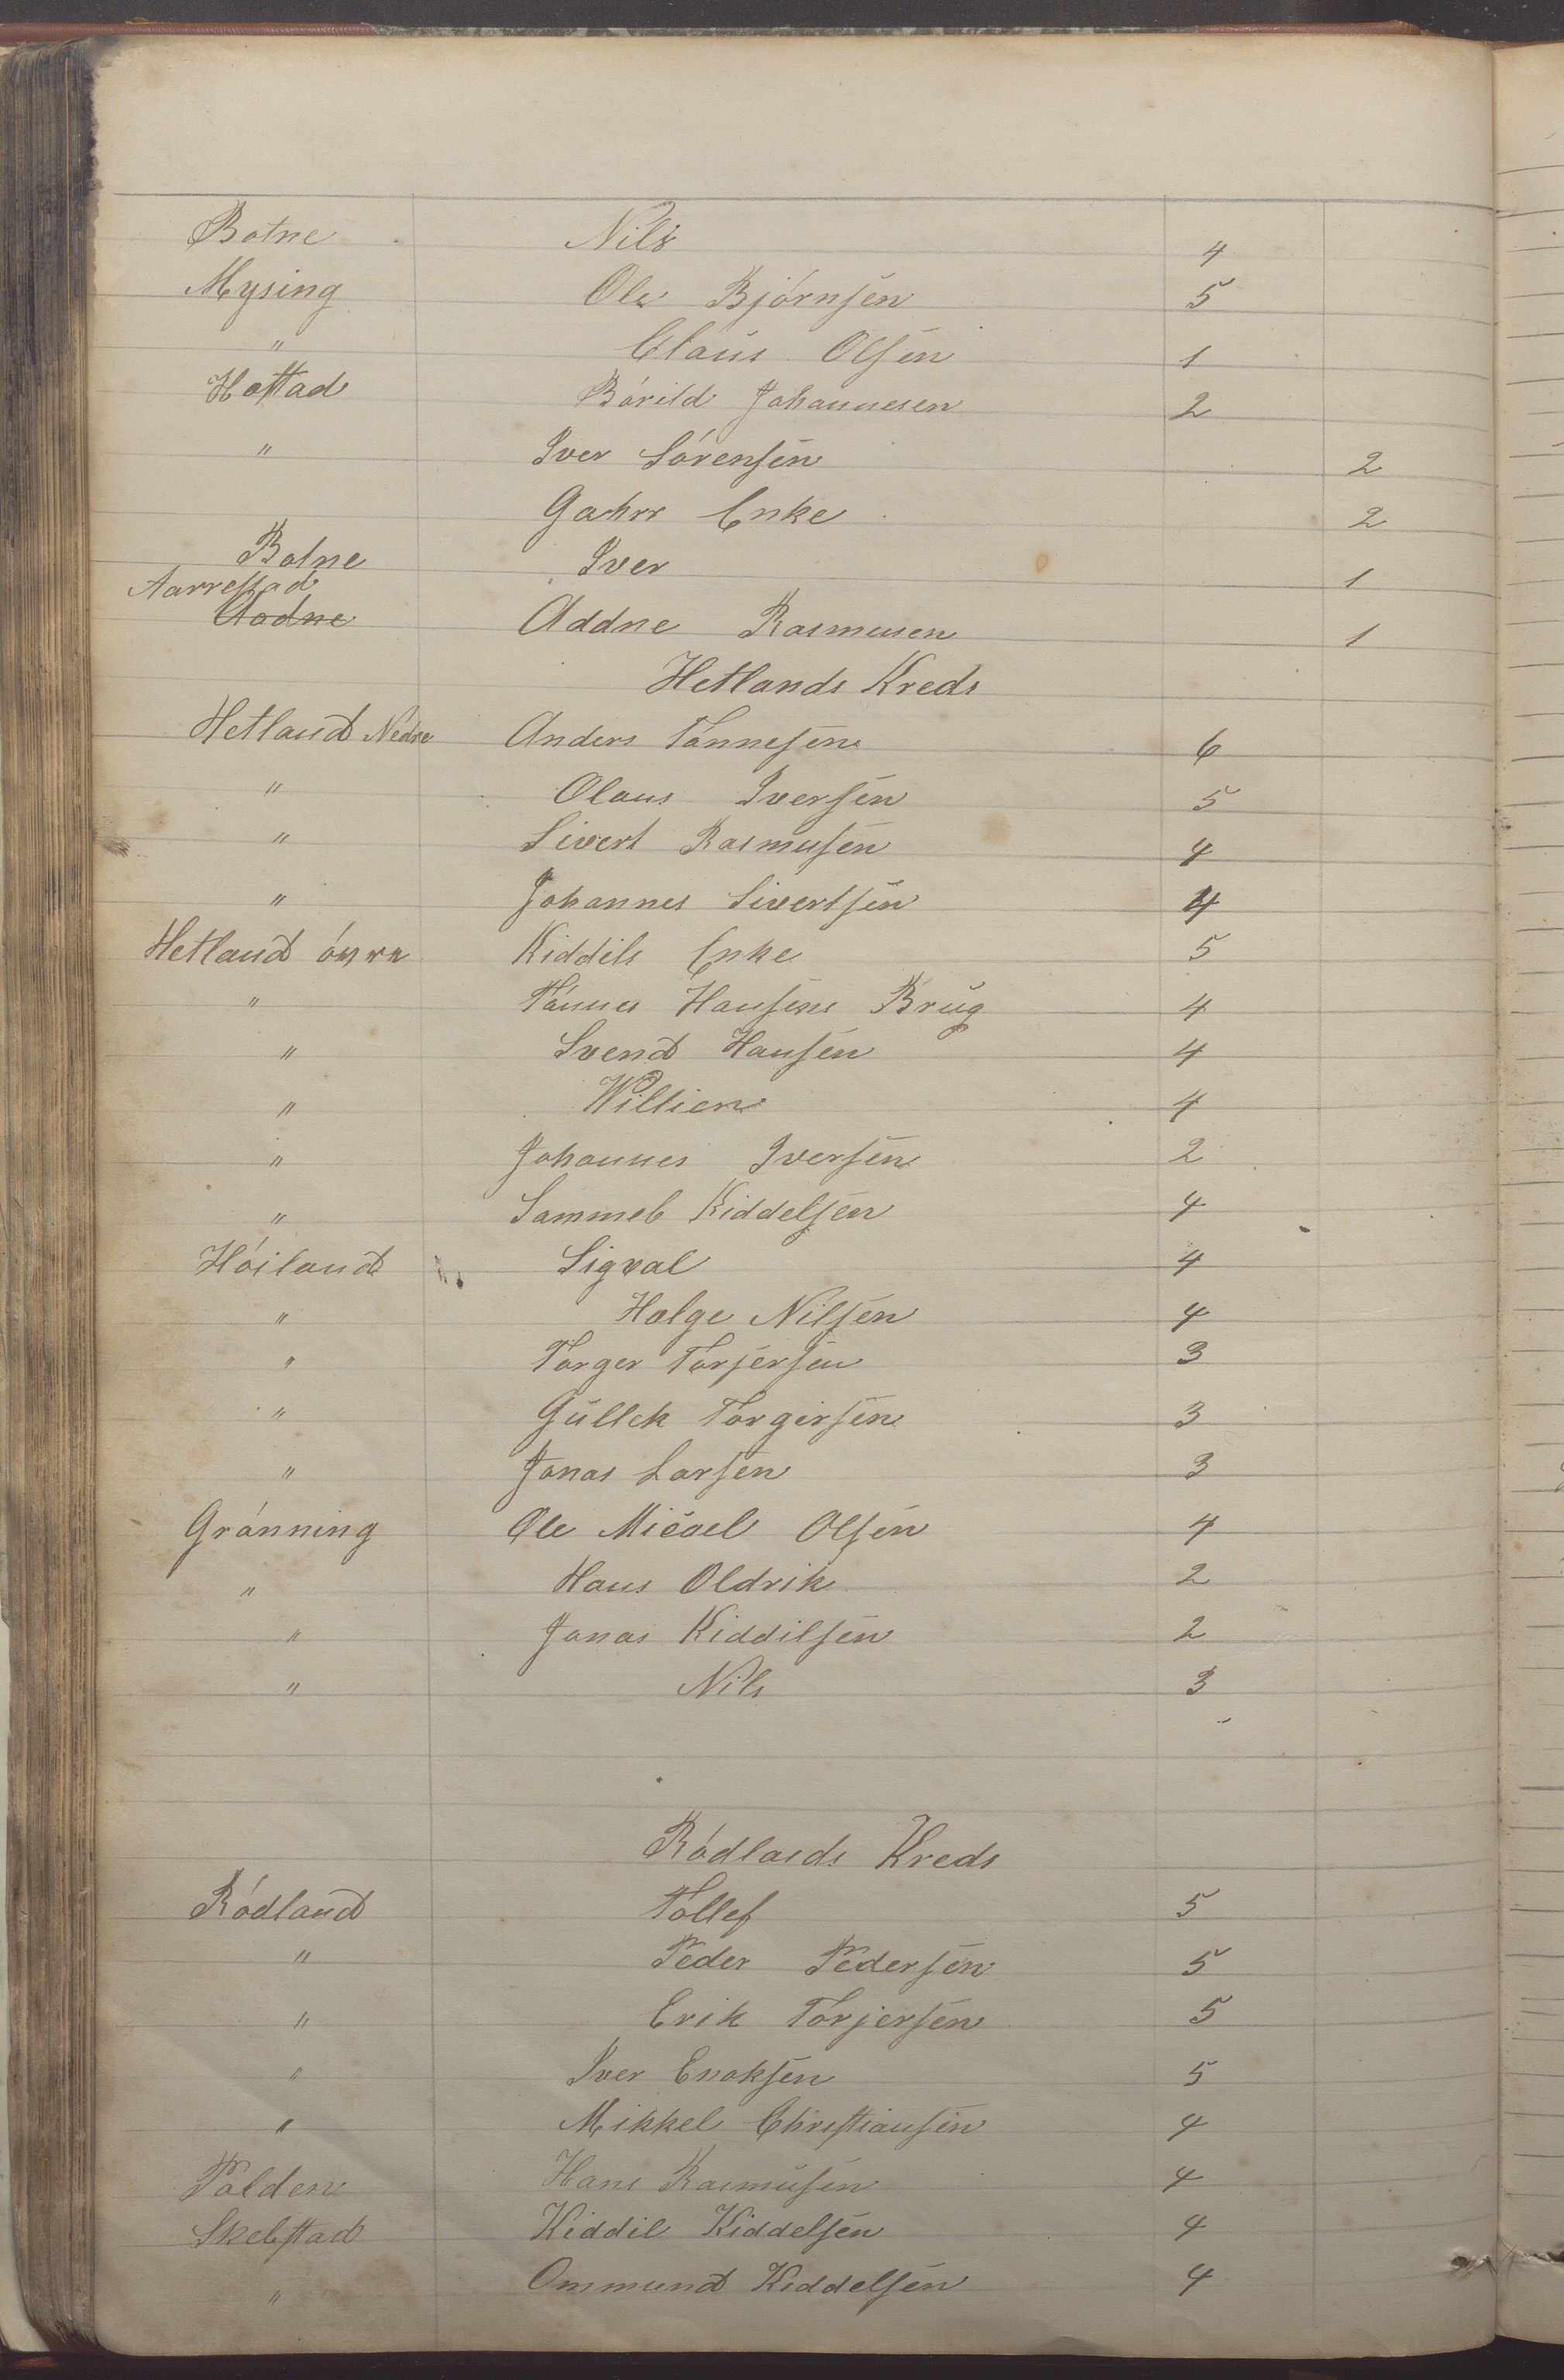 Botne Nils 4
Mysing Ole Bjórnsen 5
" Claus Olsen 1
Hattad Bórild Johannesen 2
" Iver Sórensen 2
Gahrr Enke 2
Botne Iver 1
Aarrestad
Aadne Addne Rasmusen 1
Hetlands Kreds
Hetland Nedre Anders Tónnesen 6
" Olaus Iversen 5
" Sivert Rasmusen 4
" Johannes Sivertsen 4
Hetland Kiddils Enke 5
" Tónnes Hansens Brug 4
" Svend Hansen 4
" Willien 4
" Johannes Iversen 2
" Sammel Kiddelsen 4
Hóiland Sigval 4
" Helge Nilsen 4
" Torger Torjersen 3
" Gullek Torgersen 3
" Jonas Larsen 3
Grónning Ole Micael Olsen 4
" Hans Oldrik 2
" Jonas Kiddilsen 2
" Nils 3
Ródlands Kreds
Ródland Tollef 5
" Peder Pedersen 5
" Erik Torjersen 5
" Iver Enoksen 5
" Mikkel Christiansen 4
Polden Hans Rasmusen 4
Skelstad Kiddil Kiddelsen 4
" Ommund Kiddelsen 4